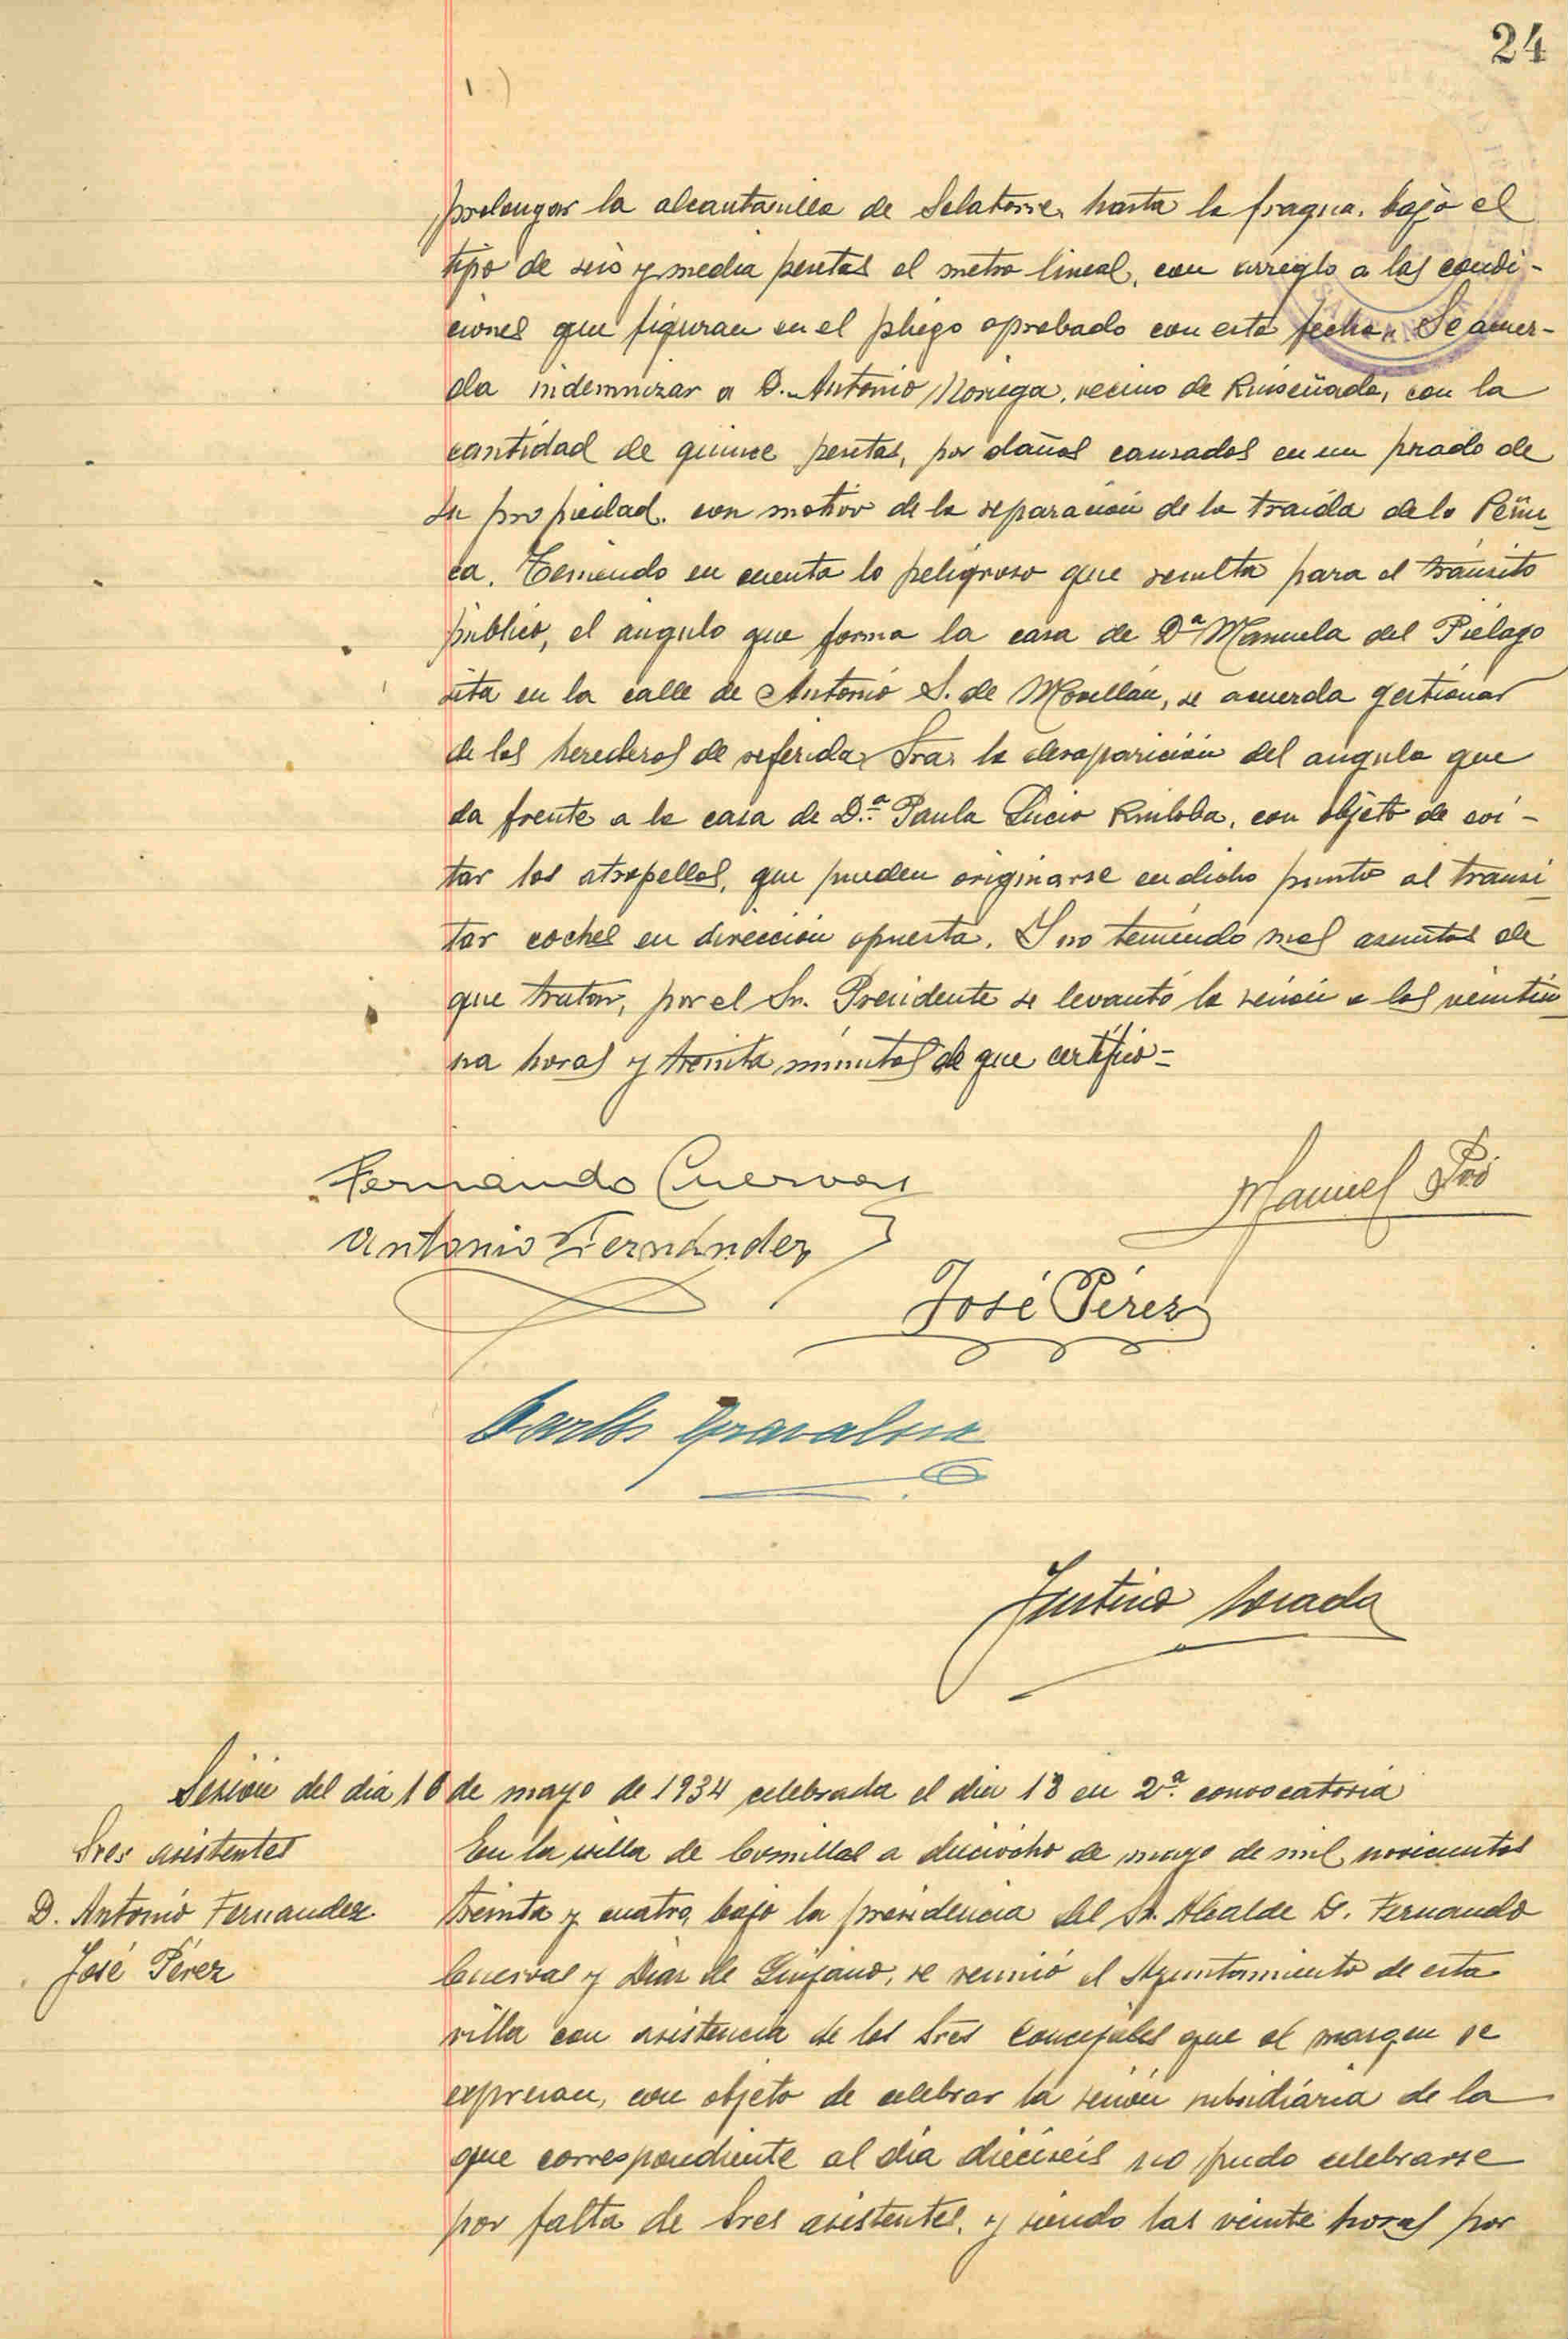 24
prolongar la alcantarilla de Selatorre, hasta la fragua, bajo el
tipo de seis y media pesetas el metro lineal, con arreglo a las condi-
ciones que figuran en el pliego aprobado con esta fecha. Se acuer-
da indemnizar a D. Antonio Noriega, vecino de Ruiseñada, con la
cantidad de quince pesetas, por daños causados en un prado de
su propiedad, con motivo de la reparación de la traída de la Peñu-
ca. Teniendo en cuenta lo peligroso que resulta para el tránsito
público, el ángulo que forma la casa de Dª Manuela del Piélago
sita en la calle de Antonio S. de Movellán, se acuerda gestionar
de los herederos de referida Sra. la desaparición del angulo que
da frente a la casa de D.ª Paula Lucio Ruiloba, con objeto de evi-
tar los atropellos, que pueden originarse en dicho punto al transi-
tar coches en dirección opuesta. Y no teniendo mas asuntos de
que tratar, por el Sr. Presidente se levantó la sesión a las veintiu-
na horas y treinta minutos de que certifico-
Fernando Cuevas
Manuel
Antonio Fernández
José Pérez
Carlos
Justino
Sesión del día 16 de mayo de 1934 celebrada el dia 18 en 2ª. convocatoria
Sres asistentes
D. Antonio Fernandez
José Pérez
En la villa de Comillas a dieciocho de mayo de mil novecientos
treinta y cuatro, bajo la presidencia del Sr. Alcalde D. Fernando
Cuevas y Diaz de Quijano, se reunió el Ayuntamiento de esta
villa con asistencia de los Sres Concejales que al margen se
expresan, con objeto de celebrar la sesión subsidiaria de la
que correspondiente al día dieciseis no pudo celebrarse
por falta de Sres asistentes, y siendo las veinte horas por